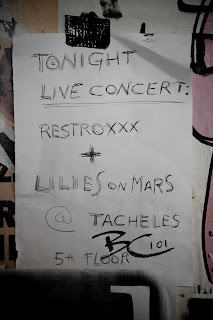 TONIGHT
LIVE CONCERT:
RESTROXXX
+
LILIES ON MARS
@ TACHELES
BC 101
5TH FLOOR